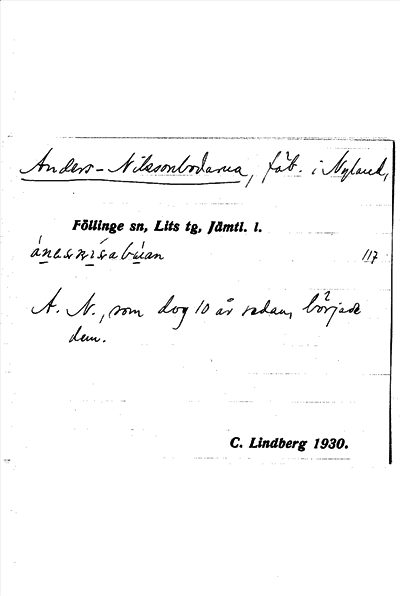 Anders-Nilssonbodarna, fäb. i Nyland,
Föllinge sn, Lits tg, Jämtl. l.
ánesnísabúan 117
A. N., som dog 10 år sedan, började
dem.
C. Lindberg 1930.